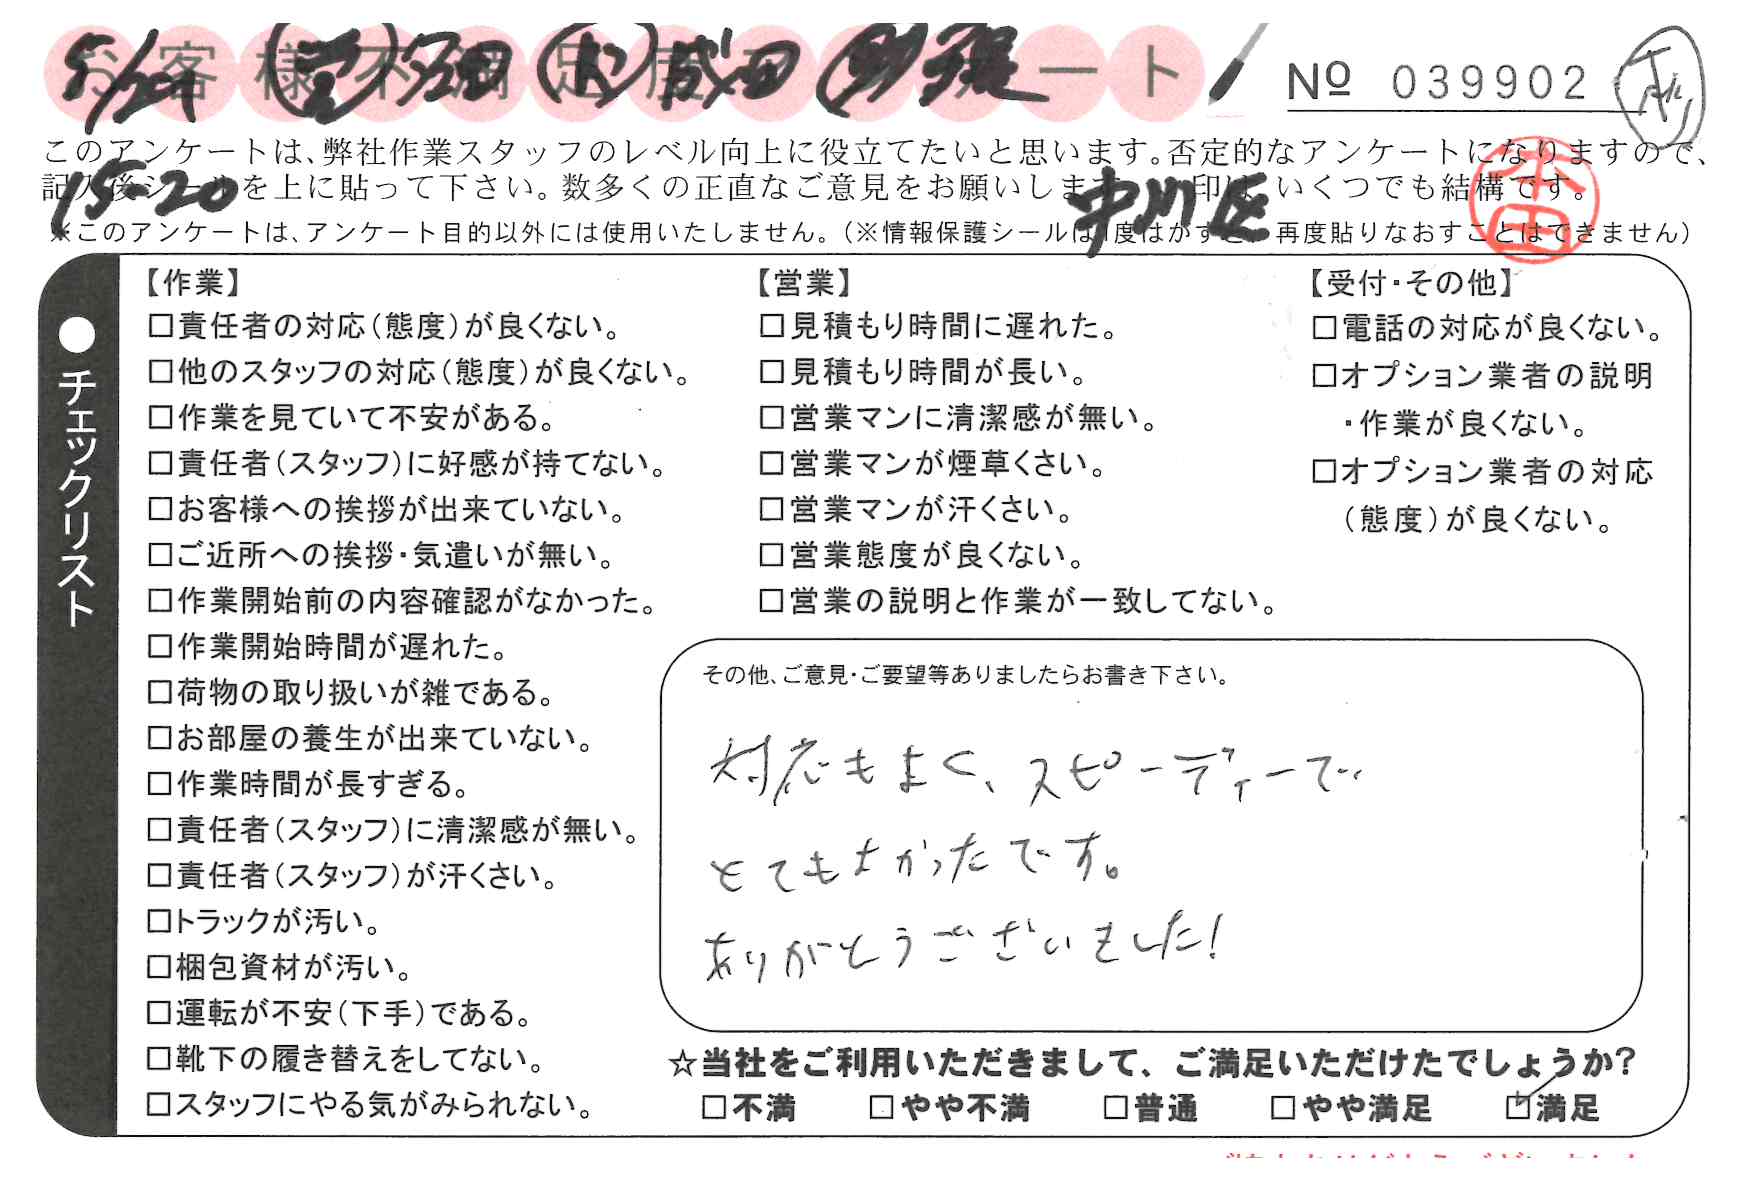 お客様不満足度アンケート
5/24
成田
№ 039902
このアンケートは、弊社作業スタッフのレベル向上に役立てたいと思います。否定的なアンケートになりますので、
記入後シールを上に貼って下さい。数多くの正直なご意見をお願いします。 印は、いくつでも結構です。
15-20
中川区
本田
※このアンケートは、アンケート目的以外には使用いたしません。(※情報保護シールは1度はがすと、再度貼りなおすことはできません)
●チェックリスト
【作業】
□責任者の対応(態度)が良くない。
□他のスタッフの対応(態度)が良くない。
□作業を見ていて不安がある。
□責任者(スタッフ)に好感が持てない。
□お客様への挨拶が出来ていない。
□ご近所への挨拶・気遣いが無い。
□作業開始前の内容確認がなかった。
□作業開始時間が遅れた。
□荷物の取り扱いが雑である。
□お部屋の養生が出来ていない。
□作業時間が長すぎる。
□責任者(スタッフ)に清潔感が無い。
□責任者(スタッフ)が汗くさい。
□トラックが汚い。
□梱包資材が汚い。
□運転が不安(下手)である。
□靴下の履き替えをしてない。
□スタッフにやる気がみられない。
【営業】
□見積もり時間に遅れた。
□見積もり時間が長い。
□営業マンに清潔感が無い。
□営業マンが煙草くさい。
□営業マンが汗くさい。
□営業態度が良くない。
□営業の説明と作業が一致してない。
【受付・その他】
□電話の対応が良くない。
□オプション業者の説明
・作業が良くない。
□オプション業者の対応
(態度)が良くない。
その他、ご意見・ご要望等ありましたらお書き下さい。
対応もよく、スピーディーで
とてもよかったです。
ありがとうございました!
☆当社をご利用いただきまして、ご満足いただけたでしょうか?
□不満 □やや不満 □普通 □やや満足 ☑満足